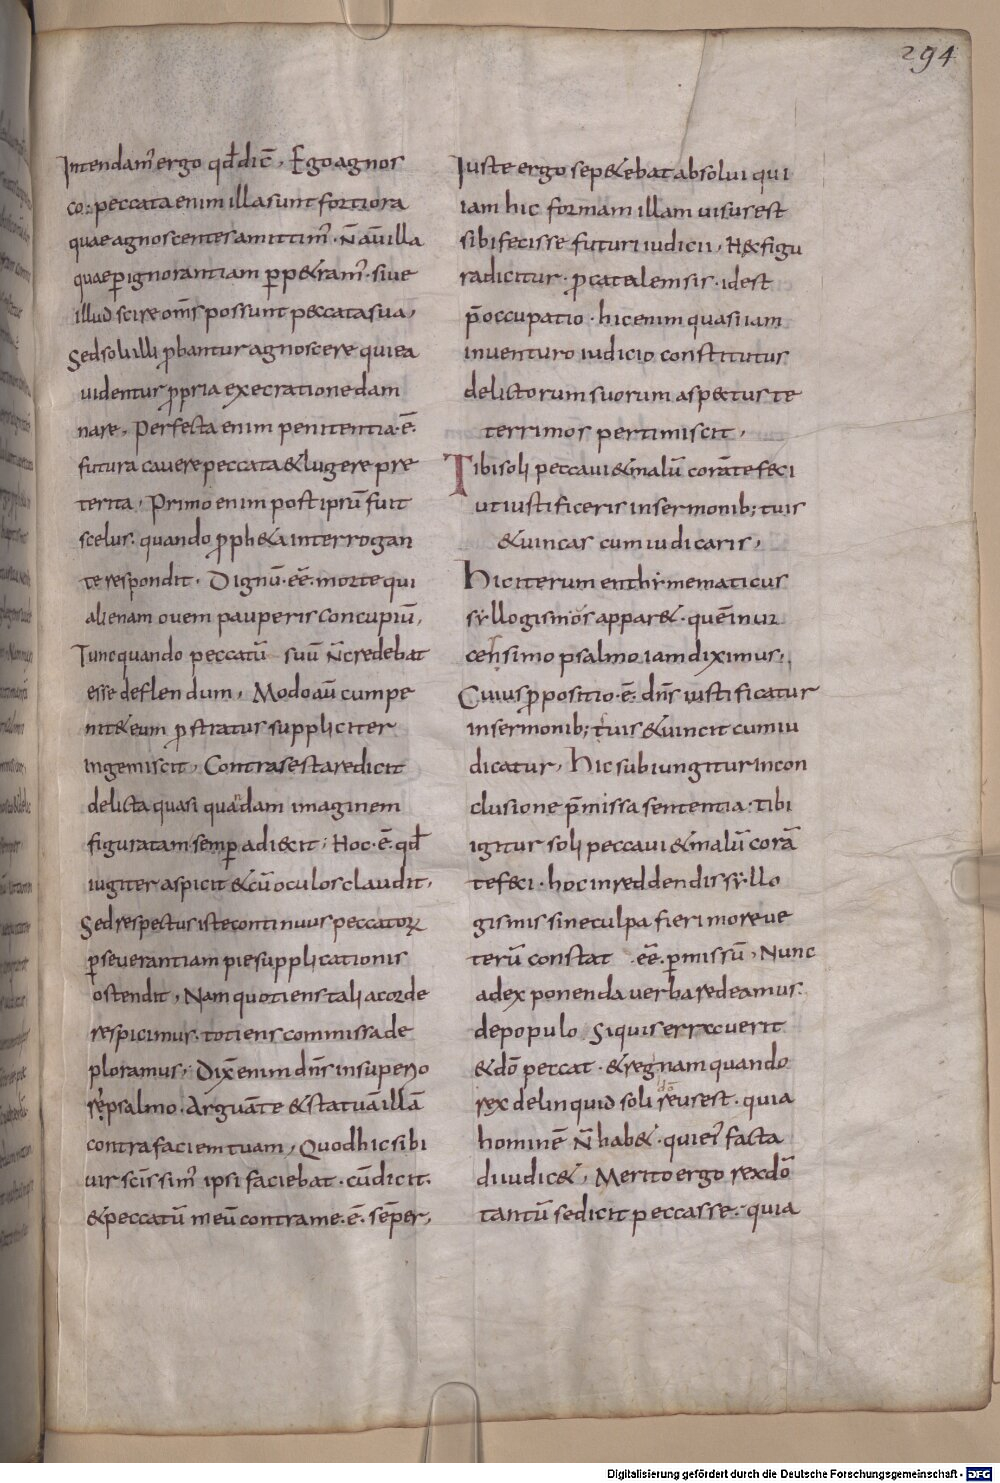 294
Intendam̄ ergo qd̄ dic̄. Ego agnos
co; peccata enim illa sunt fortiora
quae agnoscentes amittim̄. N̄ aū illa
quae ꝑ ignorantiam ꝑpetram̄. siue
illud scire om̄s possunt peccata sua,
Sed soli illi ꝓbantur agnoscere qui ea
uidentur ꝓpria execratione dam
nare, Perfecta enim penitentia .ē.
futura cauere peccata & lugere pre
terita, Primo enim post ipsū fuit
scelus. quando ꝓph&a interrogan
te respondit. Dignū .eē. morte qui
alienam ouem pauperis concupiuī,
Tunc quando peccatū suū n̄ credebat
esse deflendum, Modo aū cum pe
nit& eum ꝓstratus suppliciter
ingemiscit, Contra se sta redicit
delicta quasi quadam imaginem
figuratam semꝑ adiecit; Hoc .ē. qd̄
iugiter aspicit & cū oculos claudit,
Sed respectus iste continuus peccatoꝝ
ꝑseuerantiam pie supplicationis
ostendit, Nam quotiens tali acorde
respicimus. totiens commissa de
ploramus; Dix̄ enim dn̄s in superio
re psalmo. Arguā te & statuā illā
contra faciem tuam, Quod hic sibi
uir scīssim̄ ipsi faciebat. cū dicit.
& peccatū meū contra me .ē. sēper,
Iuste ergo se petebat absolui qui
iam hic formam illam uisus est
sibi fecisse futuri iudicii, H& figu
ra dicitur. ꝓcatalemsis. id est
p̄occupatio. hic enim quasi iam
inuenturo iudicio constitutus
delictorum suorum aspectus te
terrimos pertimiscit,
Tibi soli peccaui & malū corā te feci
ut iustificeris in sermonib; tuis
& uincas cum iudicaris,
Hic iterum enthymematicus
syllogismos appar&. quē in ui
censimo psalmo iam diximus,
Cuius ꝓpositio .ē. dn̄s iustificatur
in sermonib; tuis & uincit cum iu
dicatur, Hic subiungitur in con
clusione p̄missa sententia. tibi
igitur soli peccaui & malū corā
te feci. hoc in reddendis syllo
gismis sine culpa fieri more ue
terū constat .eē. ꝑmissū, Nunc
ad exponenda uerba redeamus.
de populo Siquis erraxuerit
& dō peccat. & regnam quando
rex delinquid soli dō reus est. quia
hominē n̄ hab&. qui ei᷒ facta
diiudic&, Merito ergo rex dō
tantū se dicit peccasse. quia
Digitalisierung gefördert durch die Deutsche Forschungsgemeinschaft - DFG